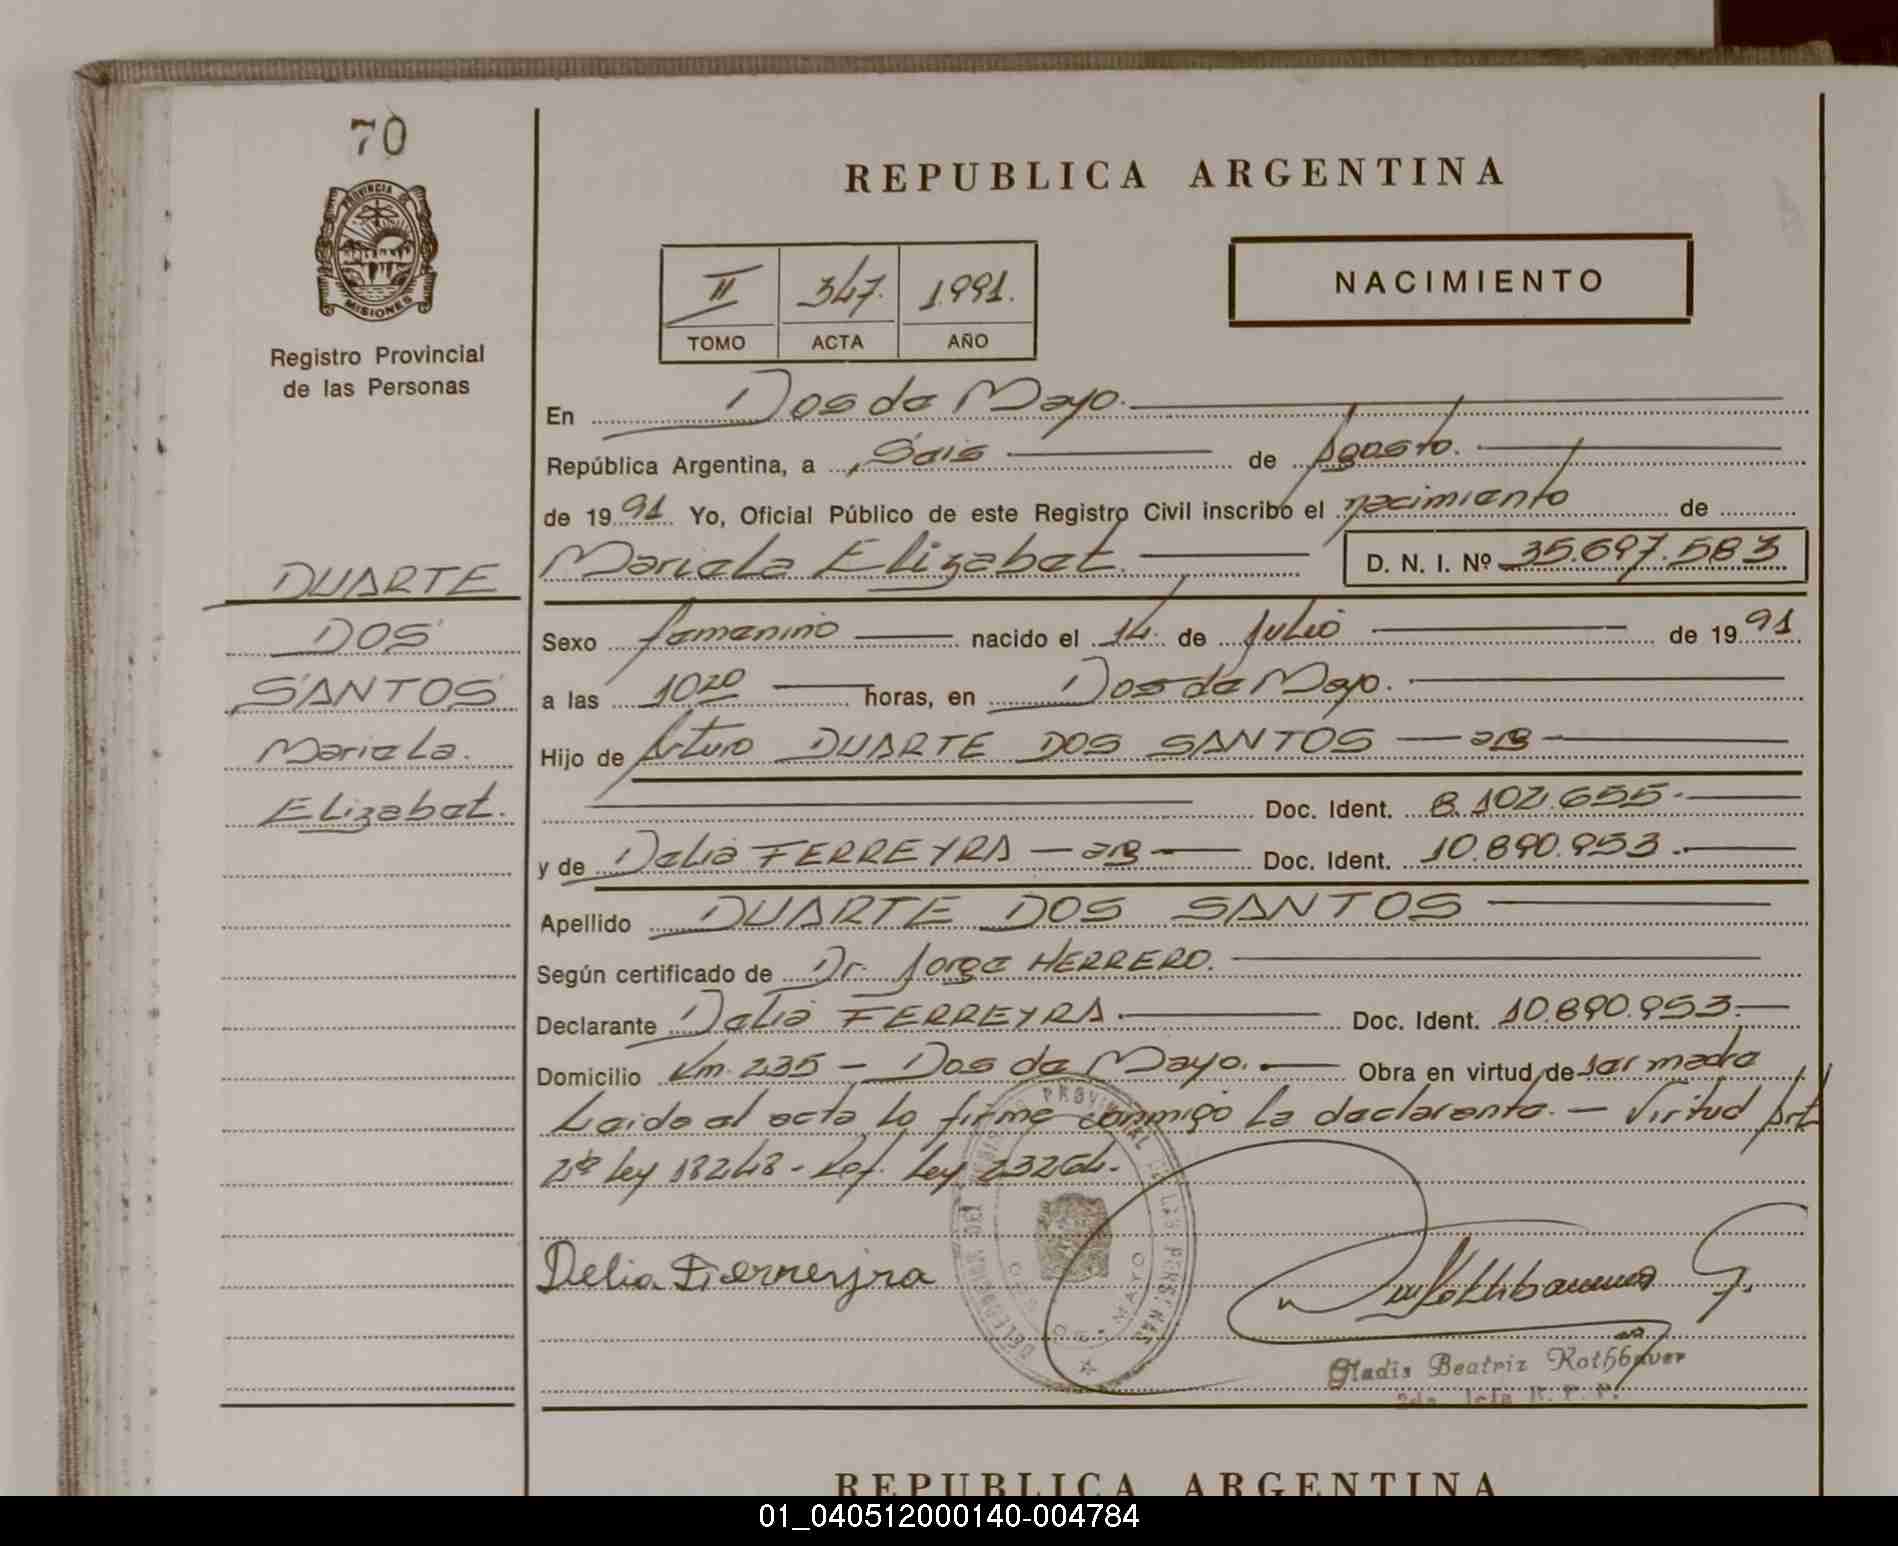 70
REPUBLICA ARGENTINA
PROVINCIA DE
MISIONES
Registro Provincial
de las Personas
II 347. 1991.
TOMO ACTA AÑO
NACIMIENTO
En Dos de Mayo.
República Argentina, a Seis de Agosto.
de 1991 Yo, Oficial Público de este Registro Civil inscribo el nacimiento de
Mariela Elizabet. D. N. I. Nº 35.697.583
DUARTE
DOS
SANTOS
Mariela.
Elizabet.
Sexo femenino nacido el 14. de Julio de 1991
a las 1020 horas, en Dos de Mayo.
Hijo de Arturo DUARTE DOS SANTOS — arg —
Doc. Ident. 8.102.655.
y de Delia FERREYRA — arg — Doc. Ident. 10.890.953.
Apellido DUARTE DOS SANTOS
Según certificado de Dr. Jorge HERRERO.
Declarante Delia FERREYRA Doc. Ident. 10.890.953.
Domicilio Km. 235 - Dos de Mayo. Obra en virtud de ser madre
Leida el acta la firma conmigo la declarante. - Virtud Art
2do ley 18248 - Ref. Ley 23264.
DELEGACION DEL REGISTRO PROVINCIAL DE LAS PERSONAS
DOS DE MAYO
Delia Ferreyra
Gladis Beatriz Rothbauer
2da. Jefe R. P. P.
REPUBLICA ARGENTINA
01_040512000140-004784